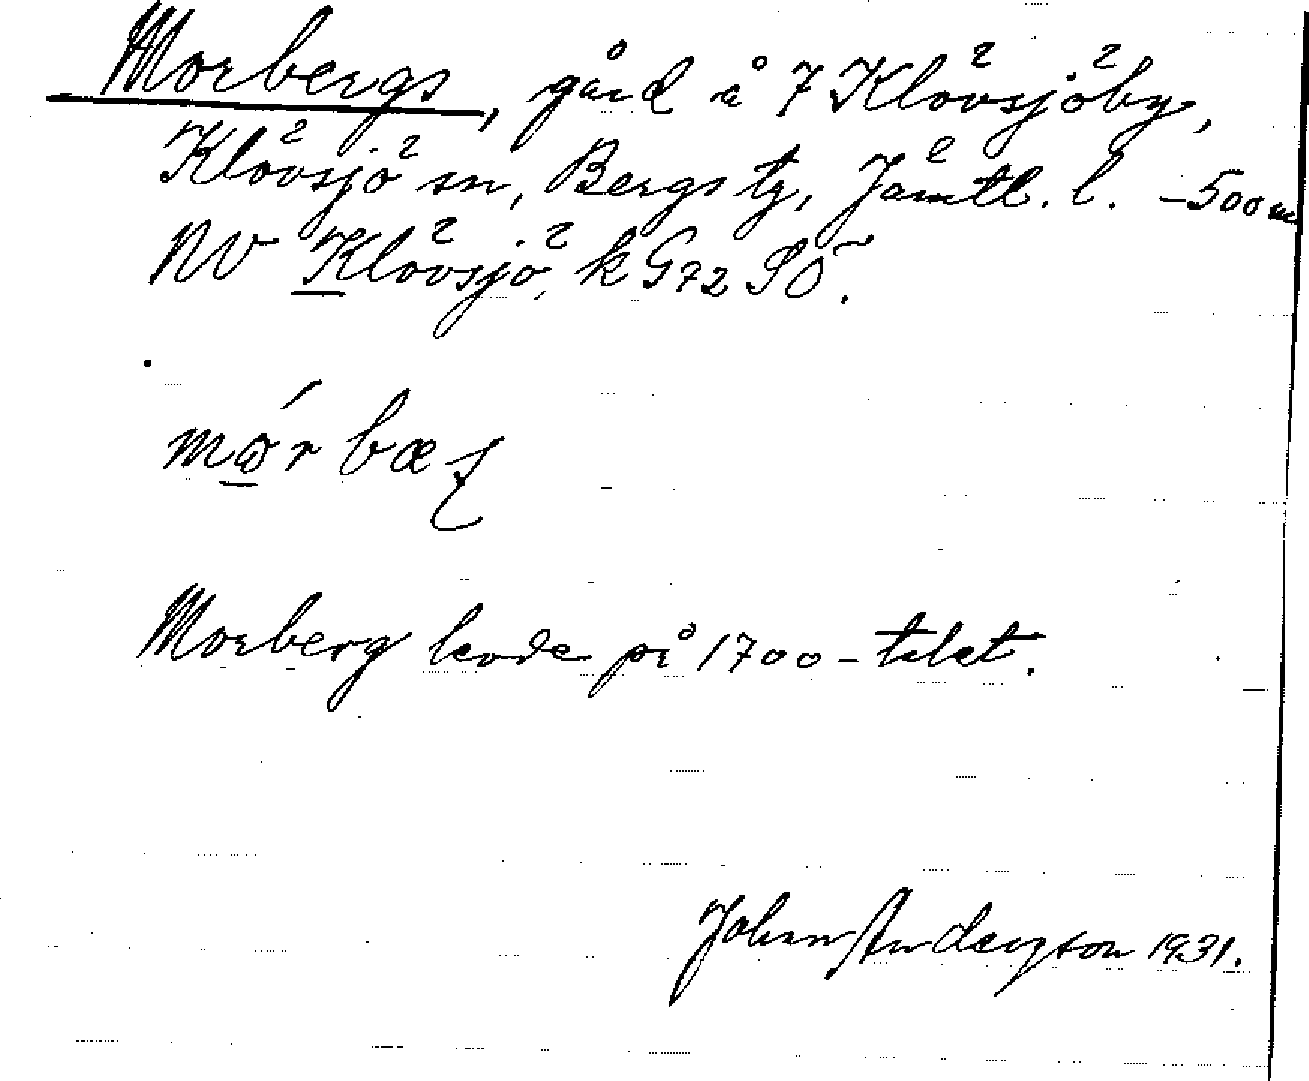 Morbergs, gård å 7 Klövsjöby,
Klövsjö sn, Bergs tg, Jämtl. l. -500 m
NV Klövsjö, k G72 SÖ.
Morberg levde på 1700-talet.
Johan Andersson 1931.